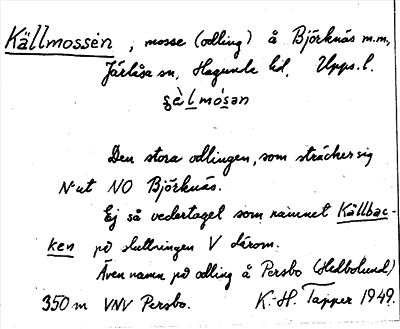 Källmossen, mosse (odling) å Björknäs m.m,
Järlåsa sn, Hagunda hd, Upps. l.
Den stora odlingen, som sträcker sig
N ut NO Björknäs.
Ej så vedertaget som namnet Källbac-
ken på sluttningen V därom.
Även namn på odling å Persbo (Hedbolund)
350 m VNV Persbo. K.-H. Tapper 1949.